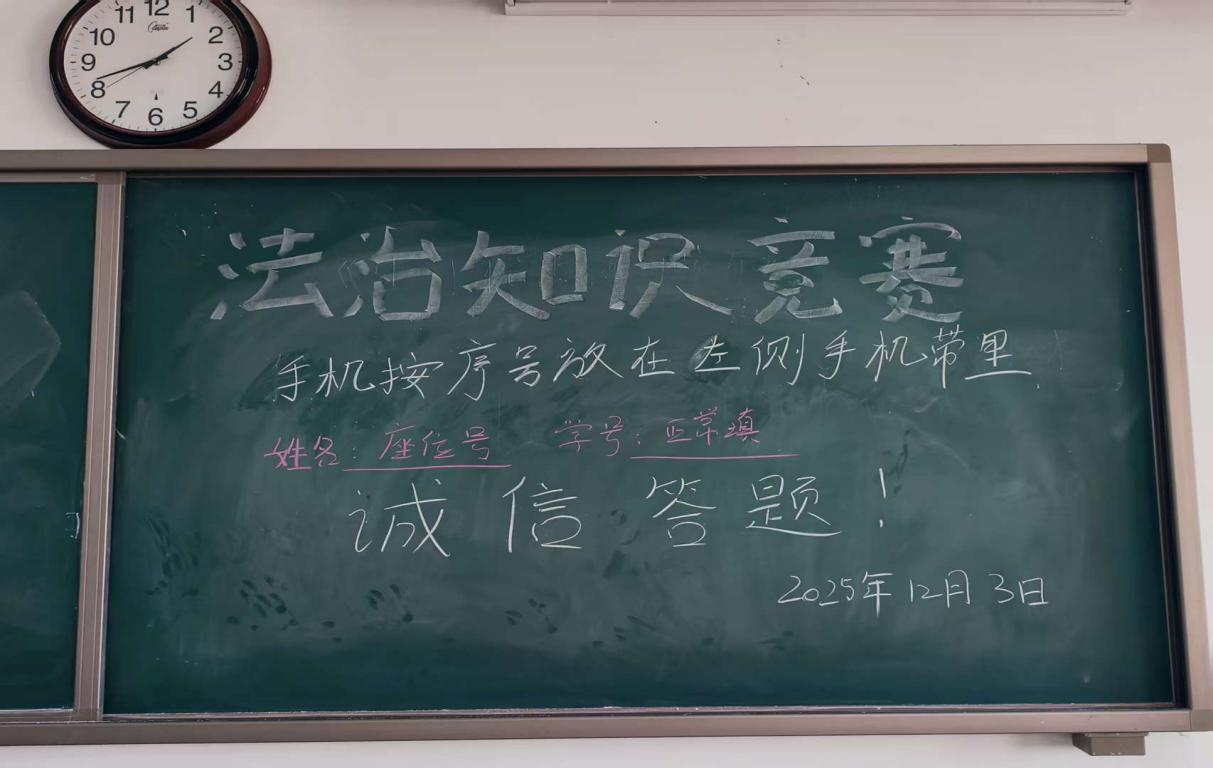 12
11 1
10 2
9 3
8 4
7 6 5
法治知识竞赛
手机按序号放在左侧手机带里
姓名:座位号 学号:正常填
诚信答题!
2025年12月3日